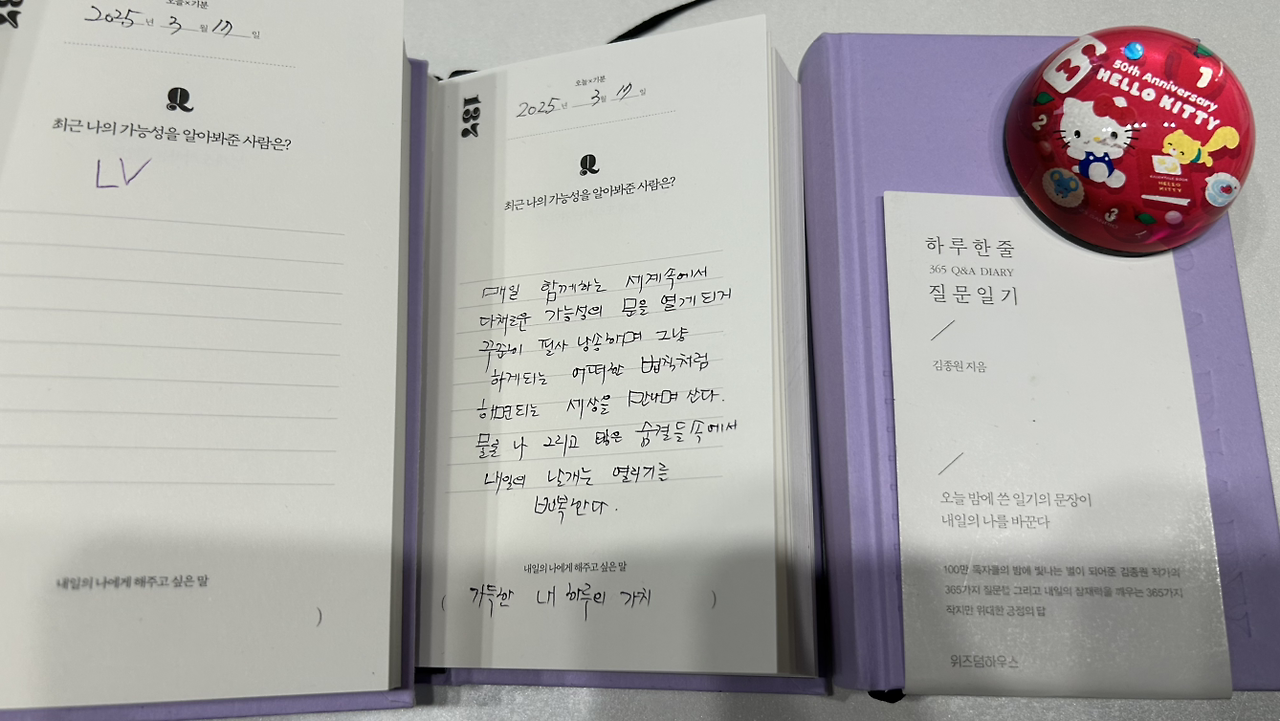 187
오늘×기분
2025년 3월 17일
Q
최근 나의 가능성을 알아봐준 사람은?
LV
내일의 나에게 해주고 싶은 말
)
187
오늘×기분
2025년 3월 17일
Q
최근 나의 가능성을 알아봐준 사람은?
매일 함께하는 세계속에서
다채로운 가능성의 문을 열게되지
꾸준히 필사 낭송하며 그냥
하게되는 어떠한 법칙처럼
하면되는 세상을 만나며 산다.
물론 나 그리고 많은 숨결들속에서
내일의 날개는 열리기를
반복한다.
내일의 나에게 해주고 싶은 말
( 가득한 내 하루의 가치 )
50th Anniversary
HELLO KITTY
1
2
3
HELLO KITTY
하루한줄
365 Q&A DIARY
질문일기
김종원 지음
오늘 밤에 쓴 일기의 문장이
내일의 나를 바꾼다
100만 독자들의 밤에 빛나는 별이 되어준 김종원 작가의
365가지 질문 그리고 내일의 잠재력을 깨우는 365가지
작지만 위대한 긍정의 답
위즈덤하우스